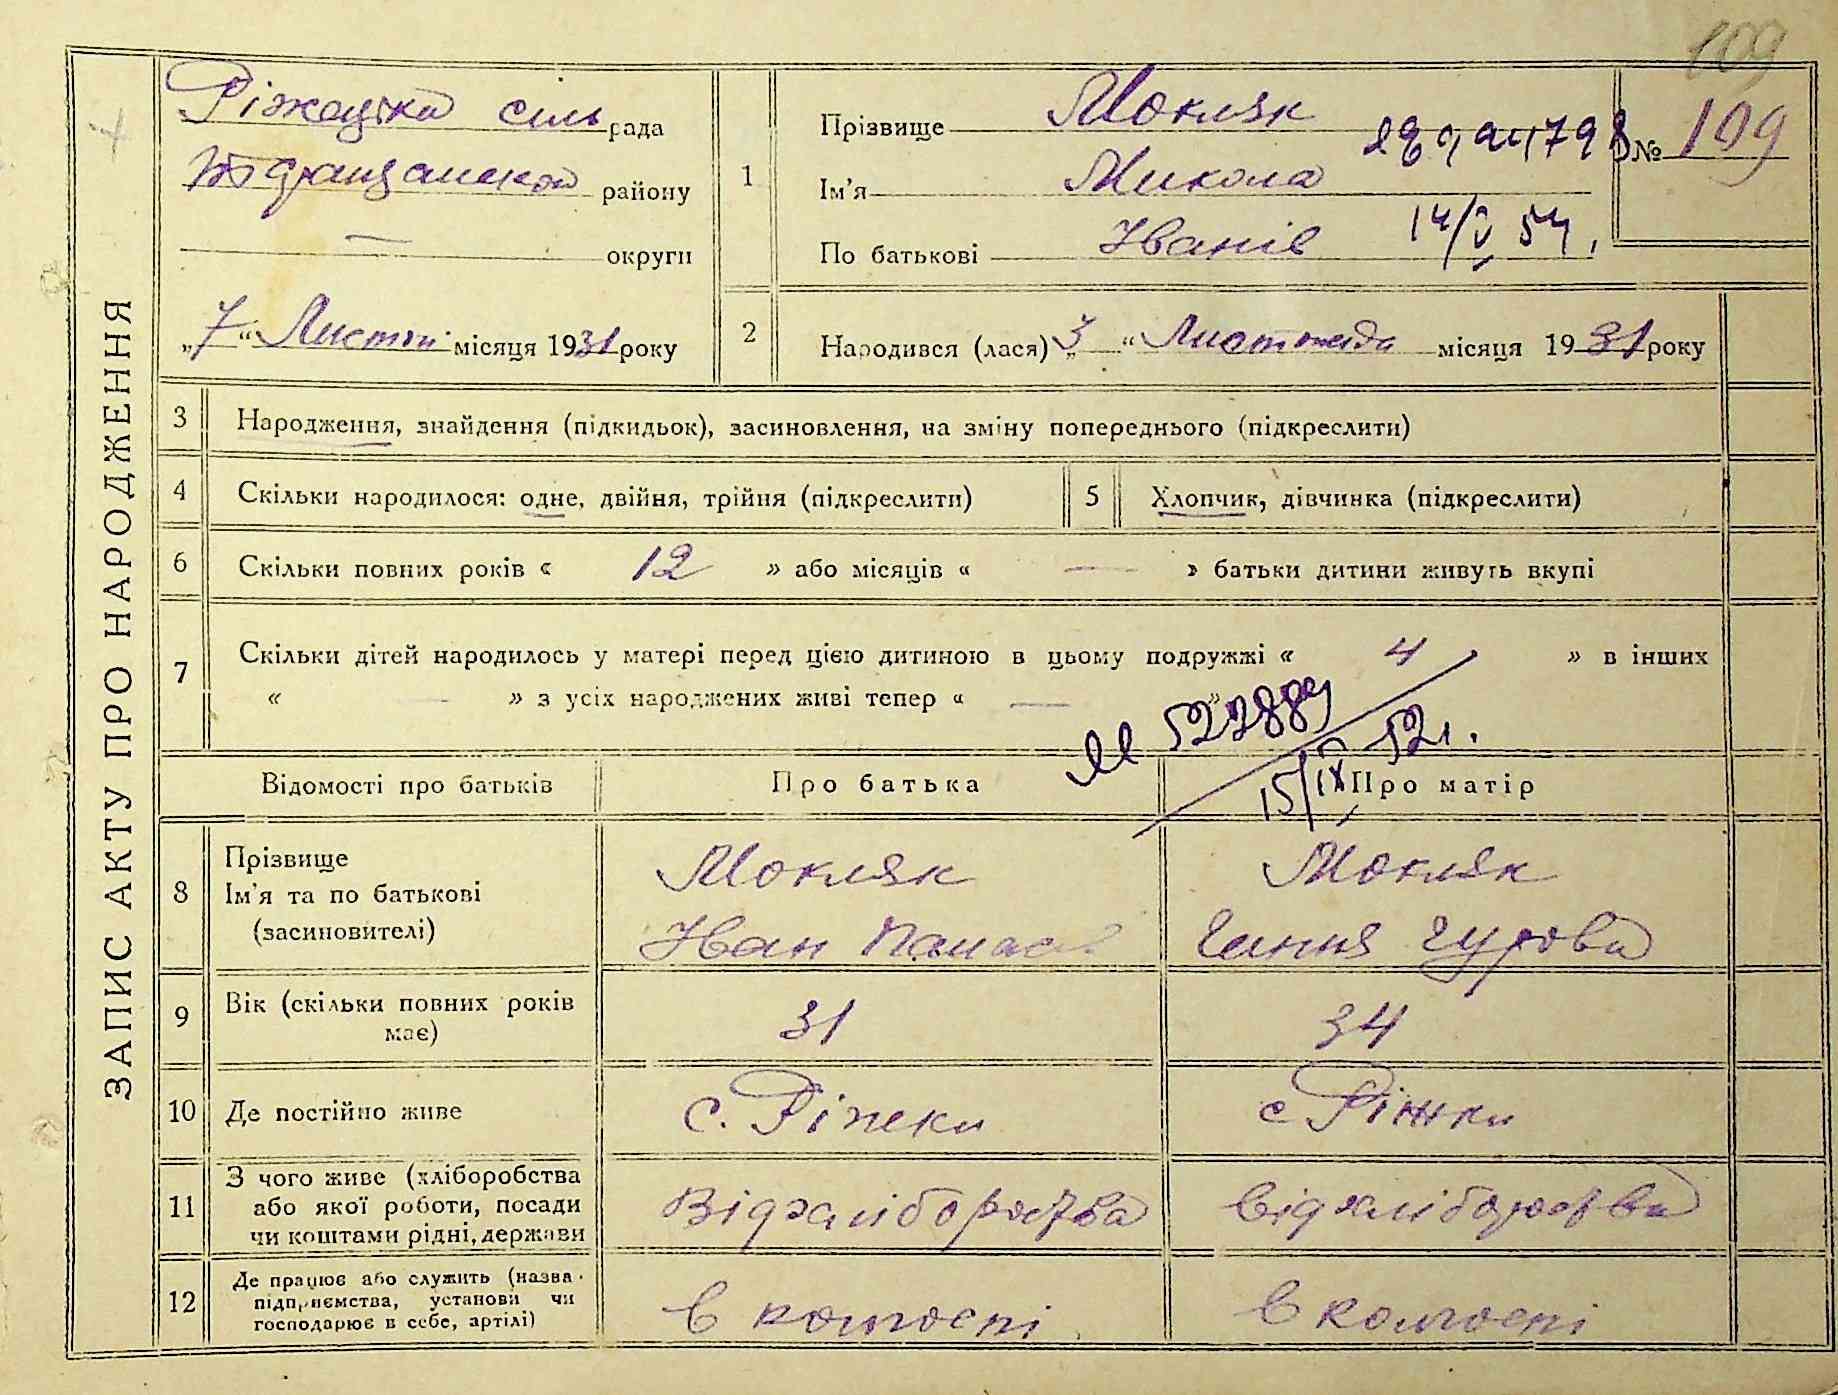 109
ЗАПИС АКТУ ПРО НАРОДЖЕННЯ
сіль рада
району
— округи
„7“ Листоп місяця 1931 року
1
Прізвище Мокляк
Ім'я Микола
По батькові Іванів
14/V 54.
№ 109
2 Народився (лася) „3“ Листопада місяця 1931 року
3 Народження, знайдення (підкидьок), засиновлення, на зміну попереднього (підкреслити)
4 Скільки народилося: одне, двійня, трійня (підкреслити) 5 Хлопчик, дівчинка (підкреслити)
6 Скільки повних років « 12 » або місяців « — » батьки дитини живуть вкупі
7 Скільки дітей народилось у матері перед цією дитиною в цьому подружжі « 4 » в інших
« — » з усіх народжених живі тепер « — »
15/IX 52г.
Відомості про батьків Про батька Про матір
8 Прізвище Мокляк Мокляк
Ім'я та по батькові
(засиновителі) Іван Панас Ганна
9 Вік (скільки повних років має) 31 34
10 Де постійно живе с. Ріжки с Ріжки
11 З чого живе (хліборобства
або якої роботи, посади
чи коштами рідні, держави Від хліборобства від хліборобства
12 Де працює або служить (назва
підприємства, установи чи
господарює в себе, артілі) в колгоспі в колгоспі